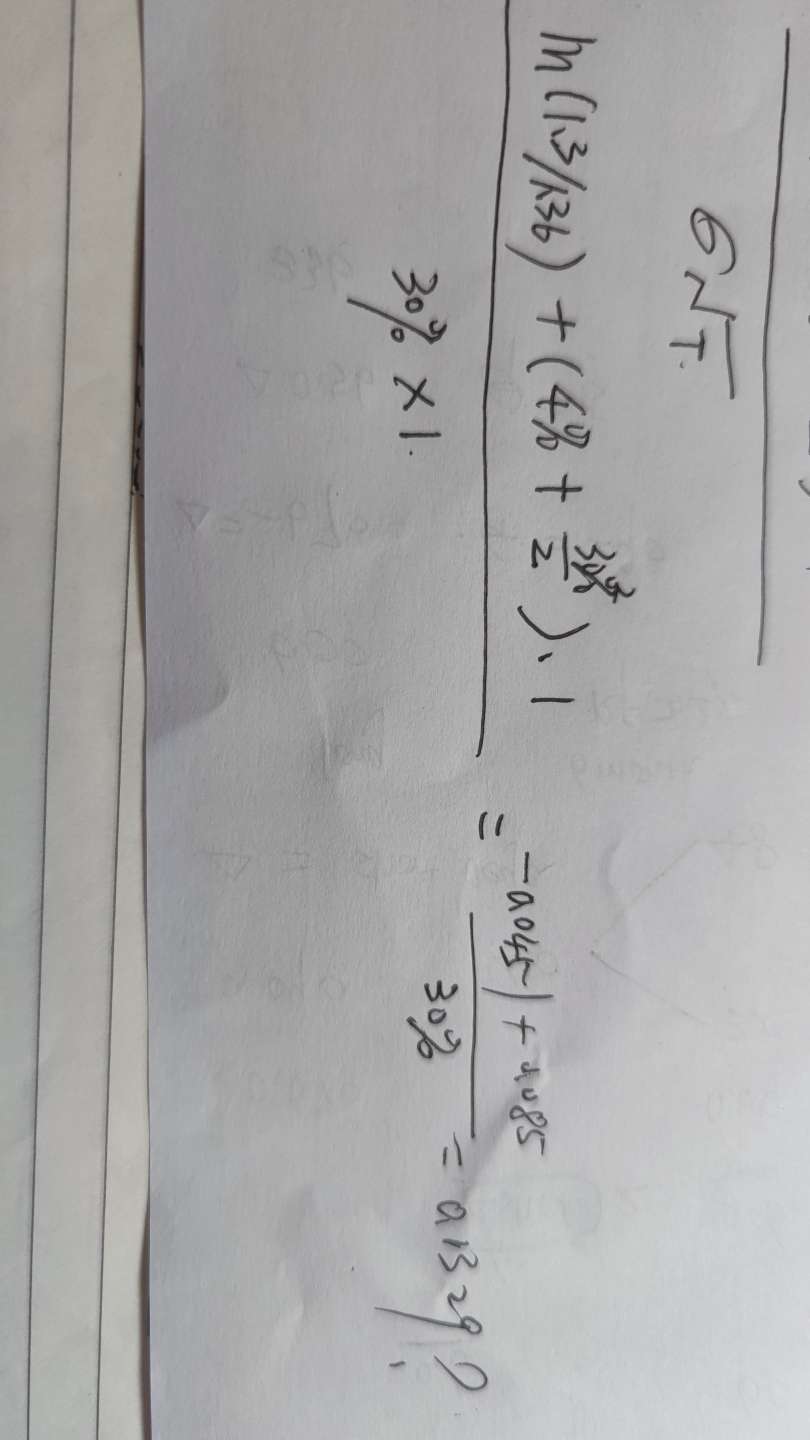 σ√T.
ln(1.3/1.36) + (4% + 30%²/2)·1
30% × 1.
= -0.0451 + 0.085
30%
= 0.1329?